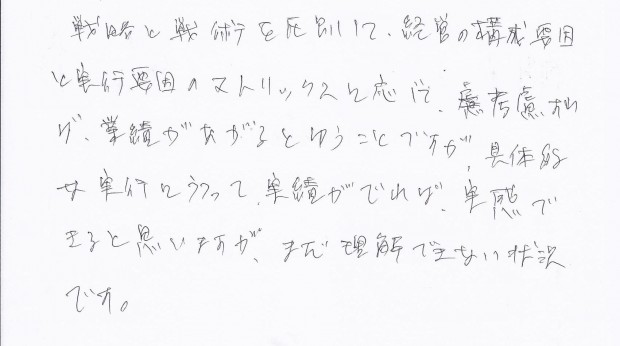 戦略と戦術を区別して、経営の構成要因
と実行要因のマトリックスに応じて、考慮すれ
ば、業績があがるとゆうことですが、具体的
な実行にうつって、実績がでれば、実感で
きると思いますが、まだ理解できない状況
です。